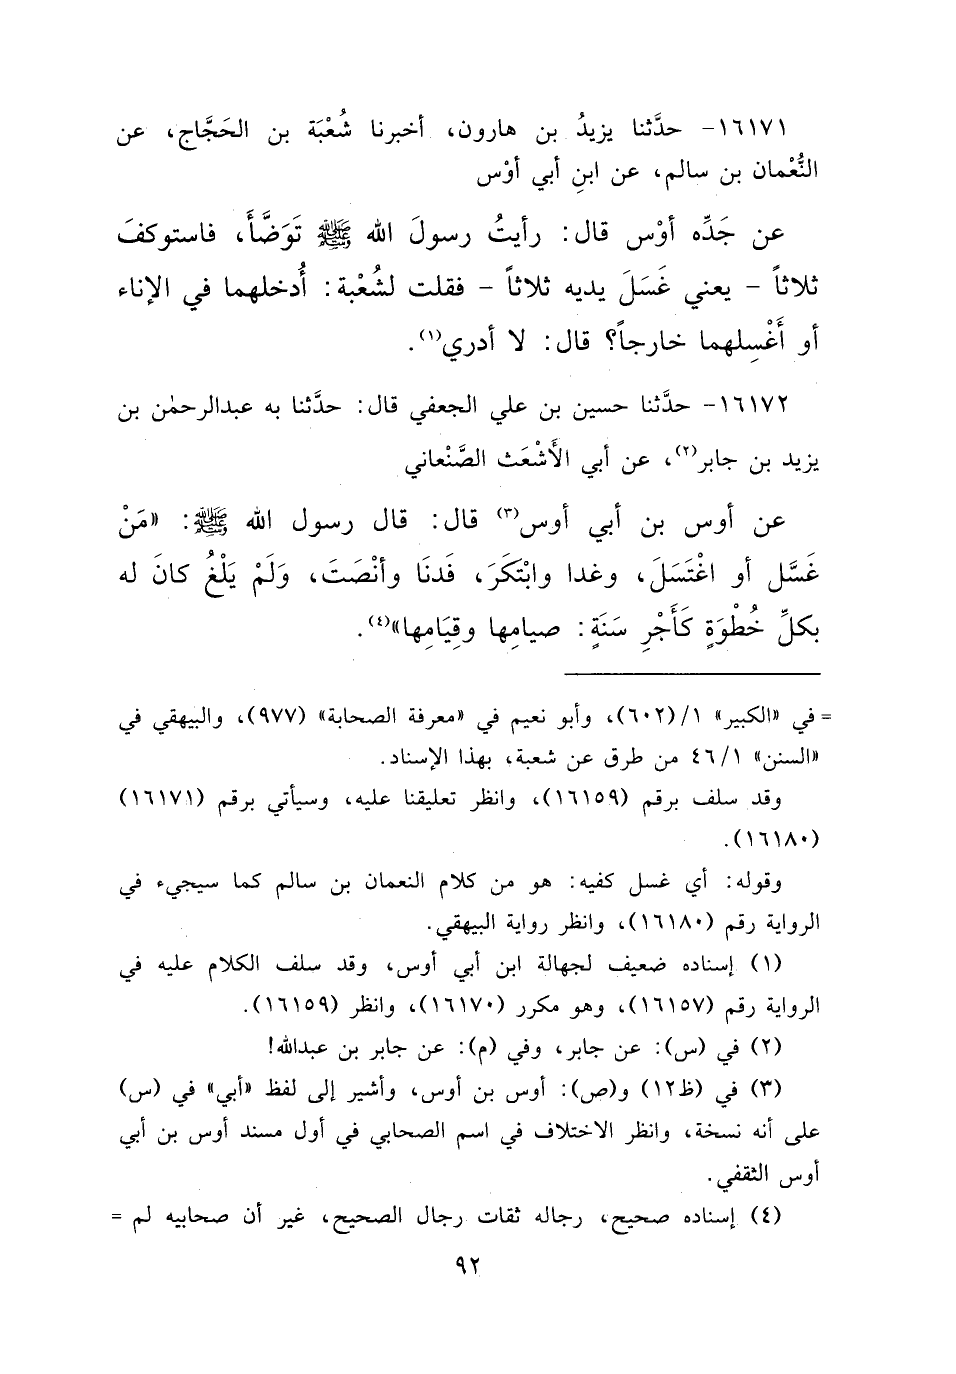 ١٦١٧١- حدَّثنا يزيدُ بن هارون، أخبرنا شُعْبَة بن الحَجَّاج، عن
النُّعْمان بن سالم، عن ابنِ أبي أوْس
عن جَدِّه أوْس قال: رأيتُ رسولَ الله ﷺ تَوَضَّأَ، فاستوكفَ
ثلاثاً - يعني غَسَلَ يديه ثلاثاً - فقلت لشُعْبة: أُدخلهما في الإناء
أو أَغْسِلهما خارجاً؟ قال: لا أدري(١).
١٦١٧٢- حدَّثنا حسين بن علي الجعفي قال: حدَّثنا به عبدالرحمٰن بن
يزيد بن جابر(٢)، عن أبي الأَشْعَث الصَّنْعاني
عن أوس بن أبي أوس(٣) قال: قال رسول الله ﷺ: «مَنْ
غَسَّل أو اغْتَسَلَ، وغدا وابْتَكَرَ، فَدنَا وأنْصَتَ، وَلَمْ يَلْغُ كانَ له
بكلِّ خُطْوَةٍ كَأَجْرِ سَنَةٍ: صيامِها وقِيَامِها»(٤).
= في «الكبير» ١/(٦٠٢)، وأبو نعيم في «معرفة الصحابة» (٩٧٧)، والبيهقي في
«السنن» ٤٦/١ من طرق عن شعبة، بهذا الإسناد.
وقد سلف برقم (١٦١٥٩)، وانظر تعليقنا عليه، وسيأتي برقم (١٦١٧١)
(١٦١٨٠).
وقوله: أي غسل كفيه: هو من كلام النعمان بن سالم كما سيجيء في
الرواية رقم (١٦١٨٠)، وانظر رواية البيهقي.
(١) إسناده ضعيف لجهالة ابن أبي أوس، وقد سلف الكلام عليه في
الرواية رقم (١٦١٥٧)، وهو مكرر (١٦١٧٠)، وانظر (١٦١٥٩).
(٢) في (س): عن جابر، وفي (م): عن جابر بن عبدالله!
(٣) في (ظ١٢) و(ص): أوس بن أوس، وأشير إلى لفظ «أبي» في (س)
على أنه نسخة، وانظر الاختلاف في اسم الصحابي في أول مسند أوس بن أبي
أوس الثقفي.
(٤) إسناده صحيح، رجاله ثقات رجال الصحيح، غير أن صحابيه لم =
٩٢